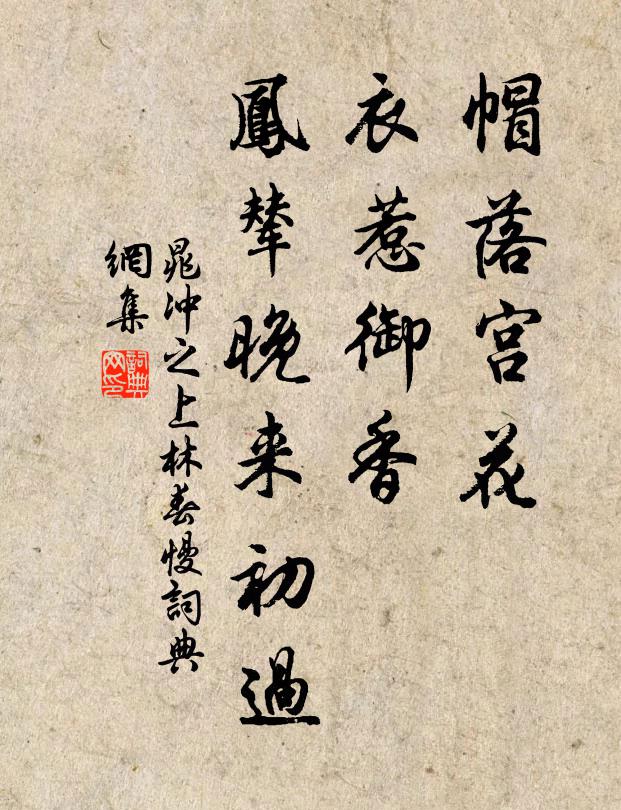 帽落宫花
衣惹御香
鳳輦晚来初過
晁冲之上林春慢詞典
網集
詞典网印